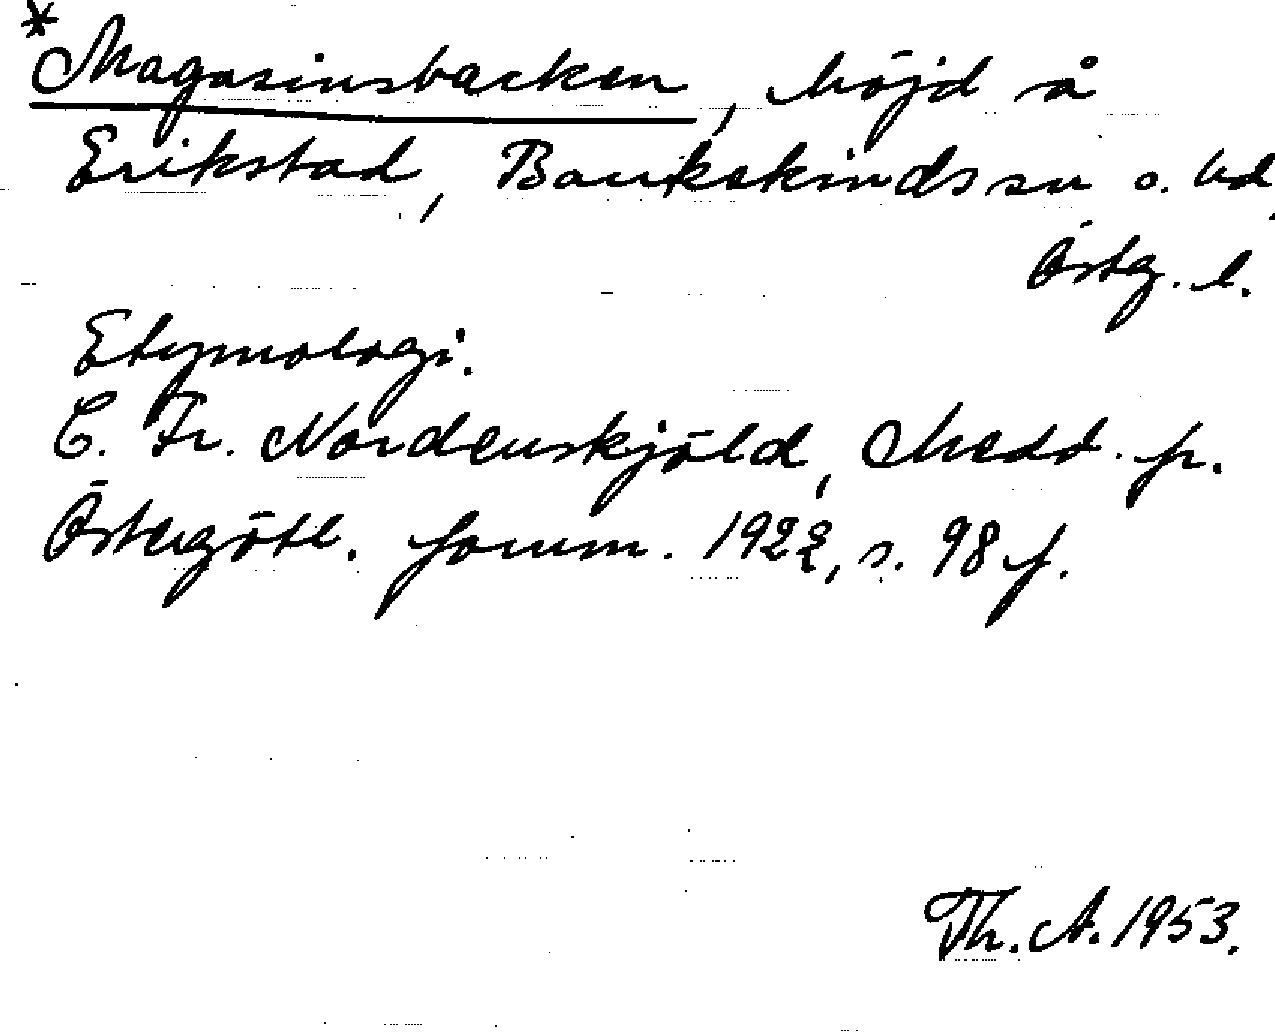 *Magasinsbacken, höjd å
Erikstad, Bankekinds sn o. hd,
Östg. l.
Etymologi.
C. Fr. Nordenskjöld, Medd. fr.
Östergötl. fornm. 1922, s. 98 f.
Th. A. 1953.